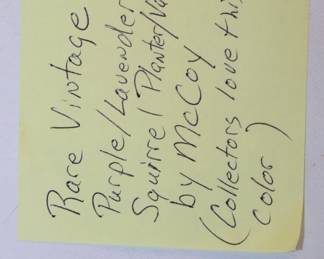 Rare Vintage
Purple/Lavender
Squirrel Planter/Va
by McCoy
(Collectors love thi
color)